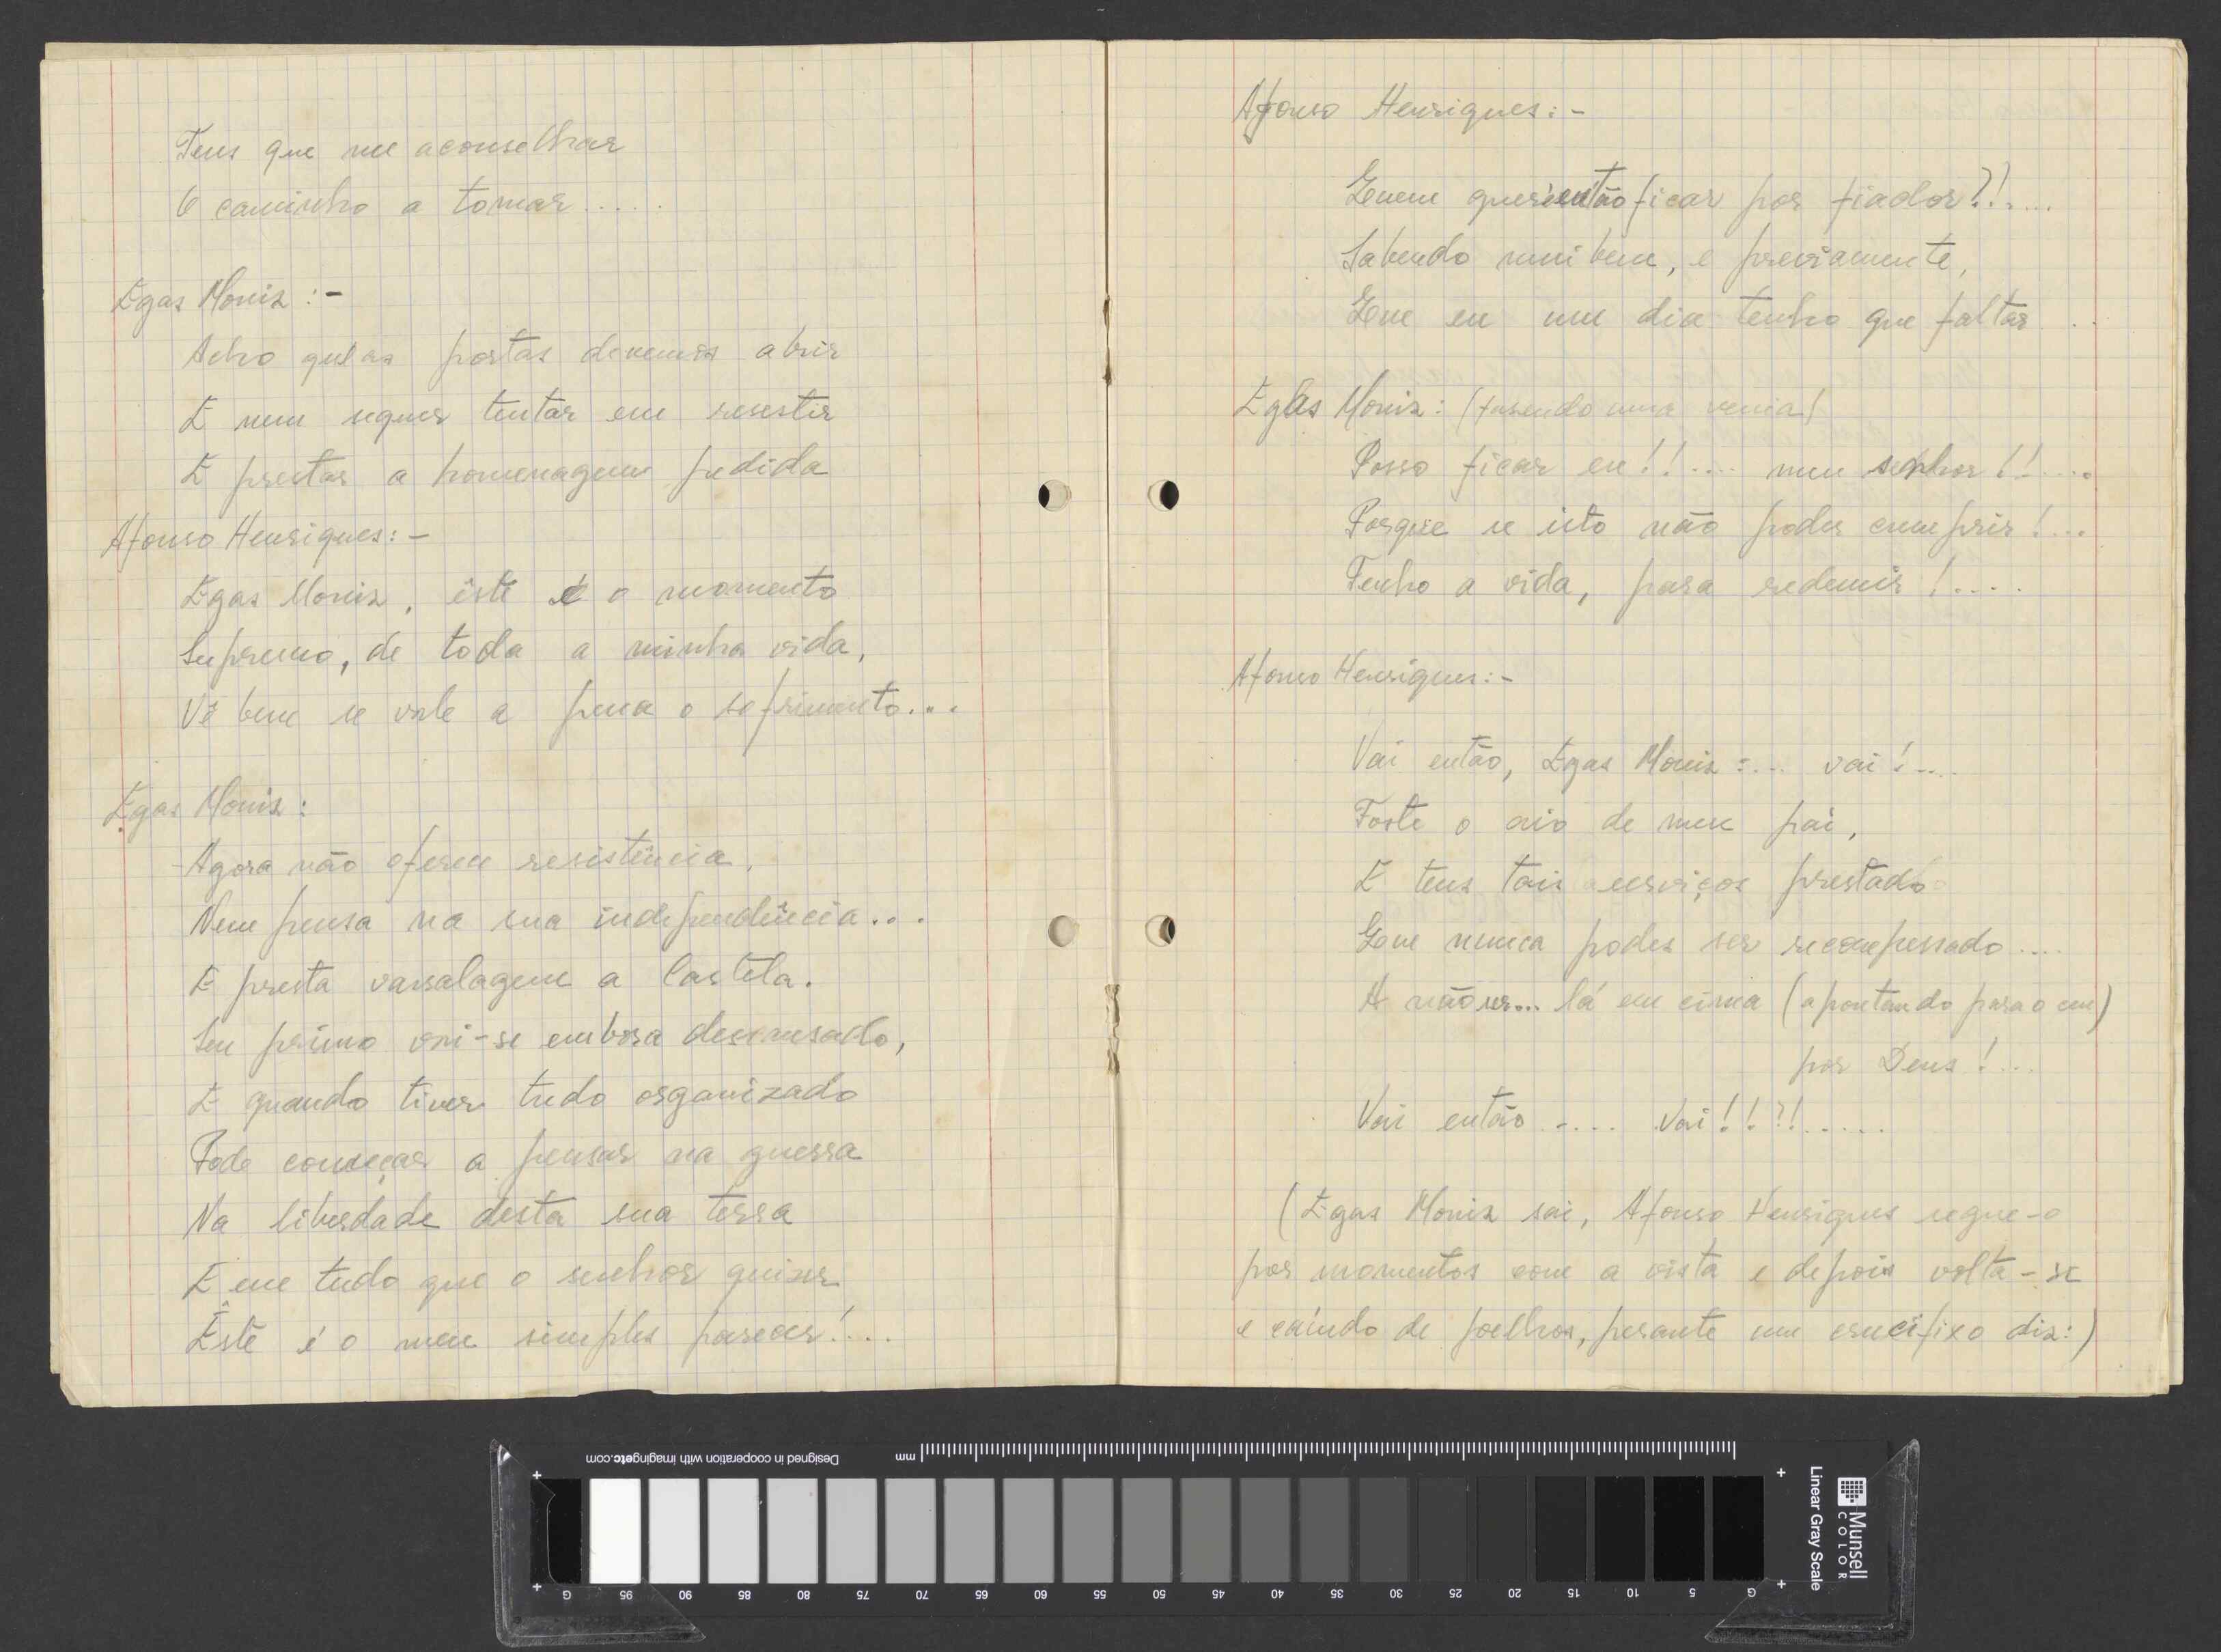 Tens que me aconselhar
O caminho a tomar.....
Egas Moniz :-
Acho que as portas devemos abrir
E nem sequer tentar em resestir
E prestar a homenagem pedida
Afonso Henriques:-
Egas Moniz, êste é o momento
Supremo, de toda a minha vida,
Vê bem se vale a pena o sofrimento...
Egas Moniz:
Agora não oferece resistência.
Nem pensa na sua independência...
E presta vassalagem a Castela.
Seu primo vai-se embora descansado,
E quando tiver tudo organizado
Pode começar a pensar na guerra
Na liberdade desta sua terra
E em tudo que o senhor quizer
Êste é o meu simples parecer!...
Afonso Henriques:-
Quem quer então ficar por fiador?!....
Sabendo mui bem, e previamente,
Que eu um dia tenho que faltar...
Egas Moniz: (fasendo uma venia)
Posso ficar eu!!.... meu senhor!!....
Porque se isto não poder cumprir!...
Tenho a vida, para redemir!....
Afonso Henriques:-
Vai então, Egas Moniz:... vai!....
Foste o aio de meu pai,
E tens tais serviços prestado
Que nunca podes ser recompessado....
A não ser... lá em cima (apontando para o ceu)
por Deus!...
Vai então.... Vai!!?!.....
(Egas Moniz sai, Afonso Henriques segue-o
por momentos com a vista e depois volta-se
e caíndo de joelhos, perante um crucifixo diz:)
Designed in cooperation with imagingetc.com
mm
G 95 90 85 80 75 70 65 60 55 50 45 40 35 30 25 20 15 10 5 G
Munsell
COLOR
Linear Gray Scale